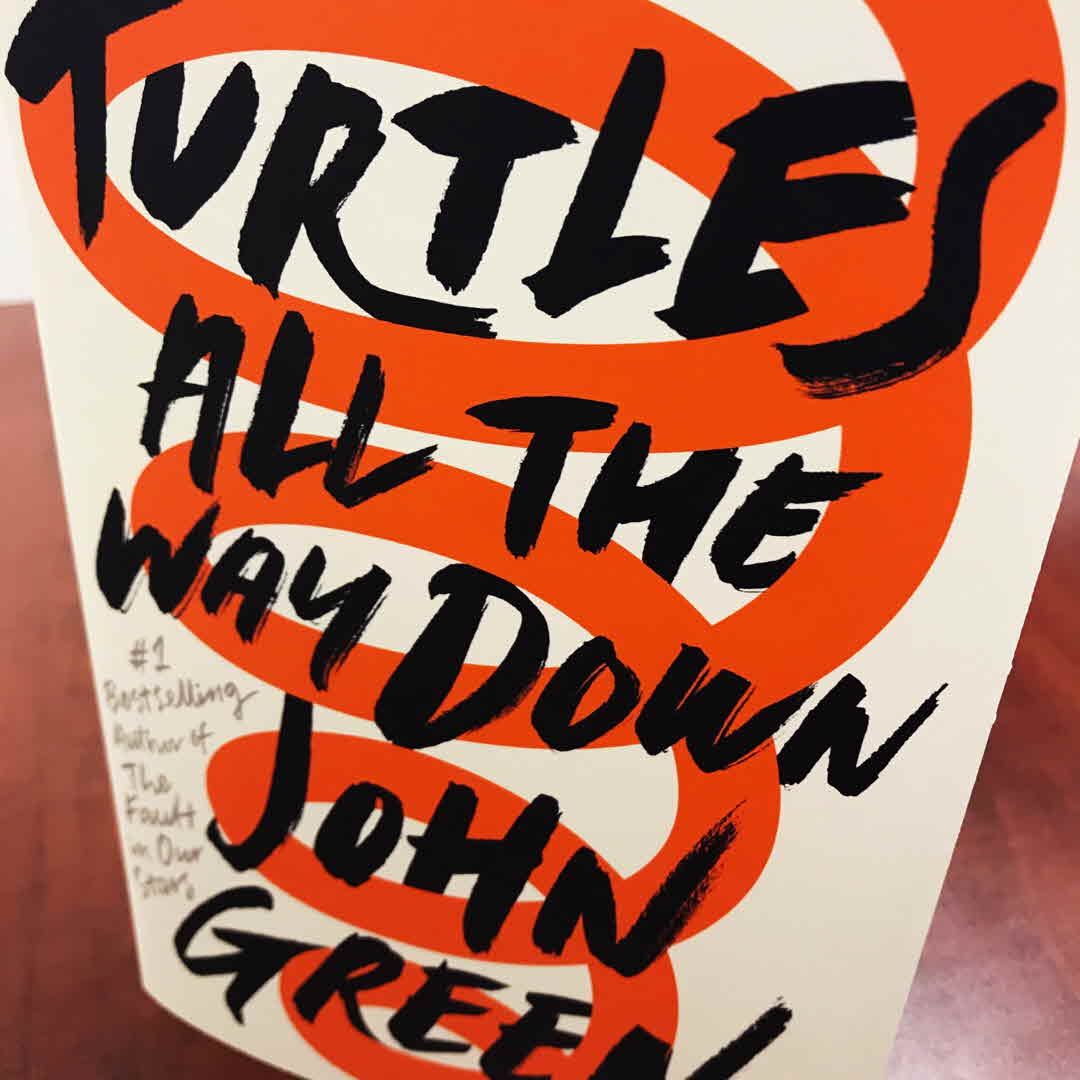 TURTLES
ALL THE
WAY DOWN
JOHN
GREEN
#1
Bestselling
Author of
The
Fault
in Our
Stars